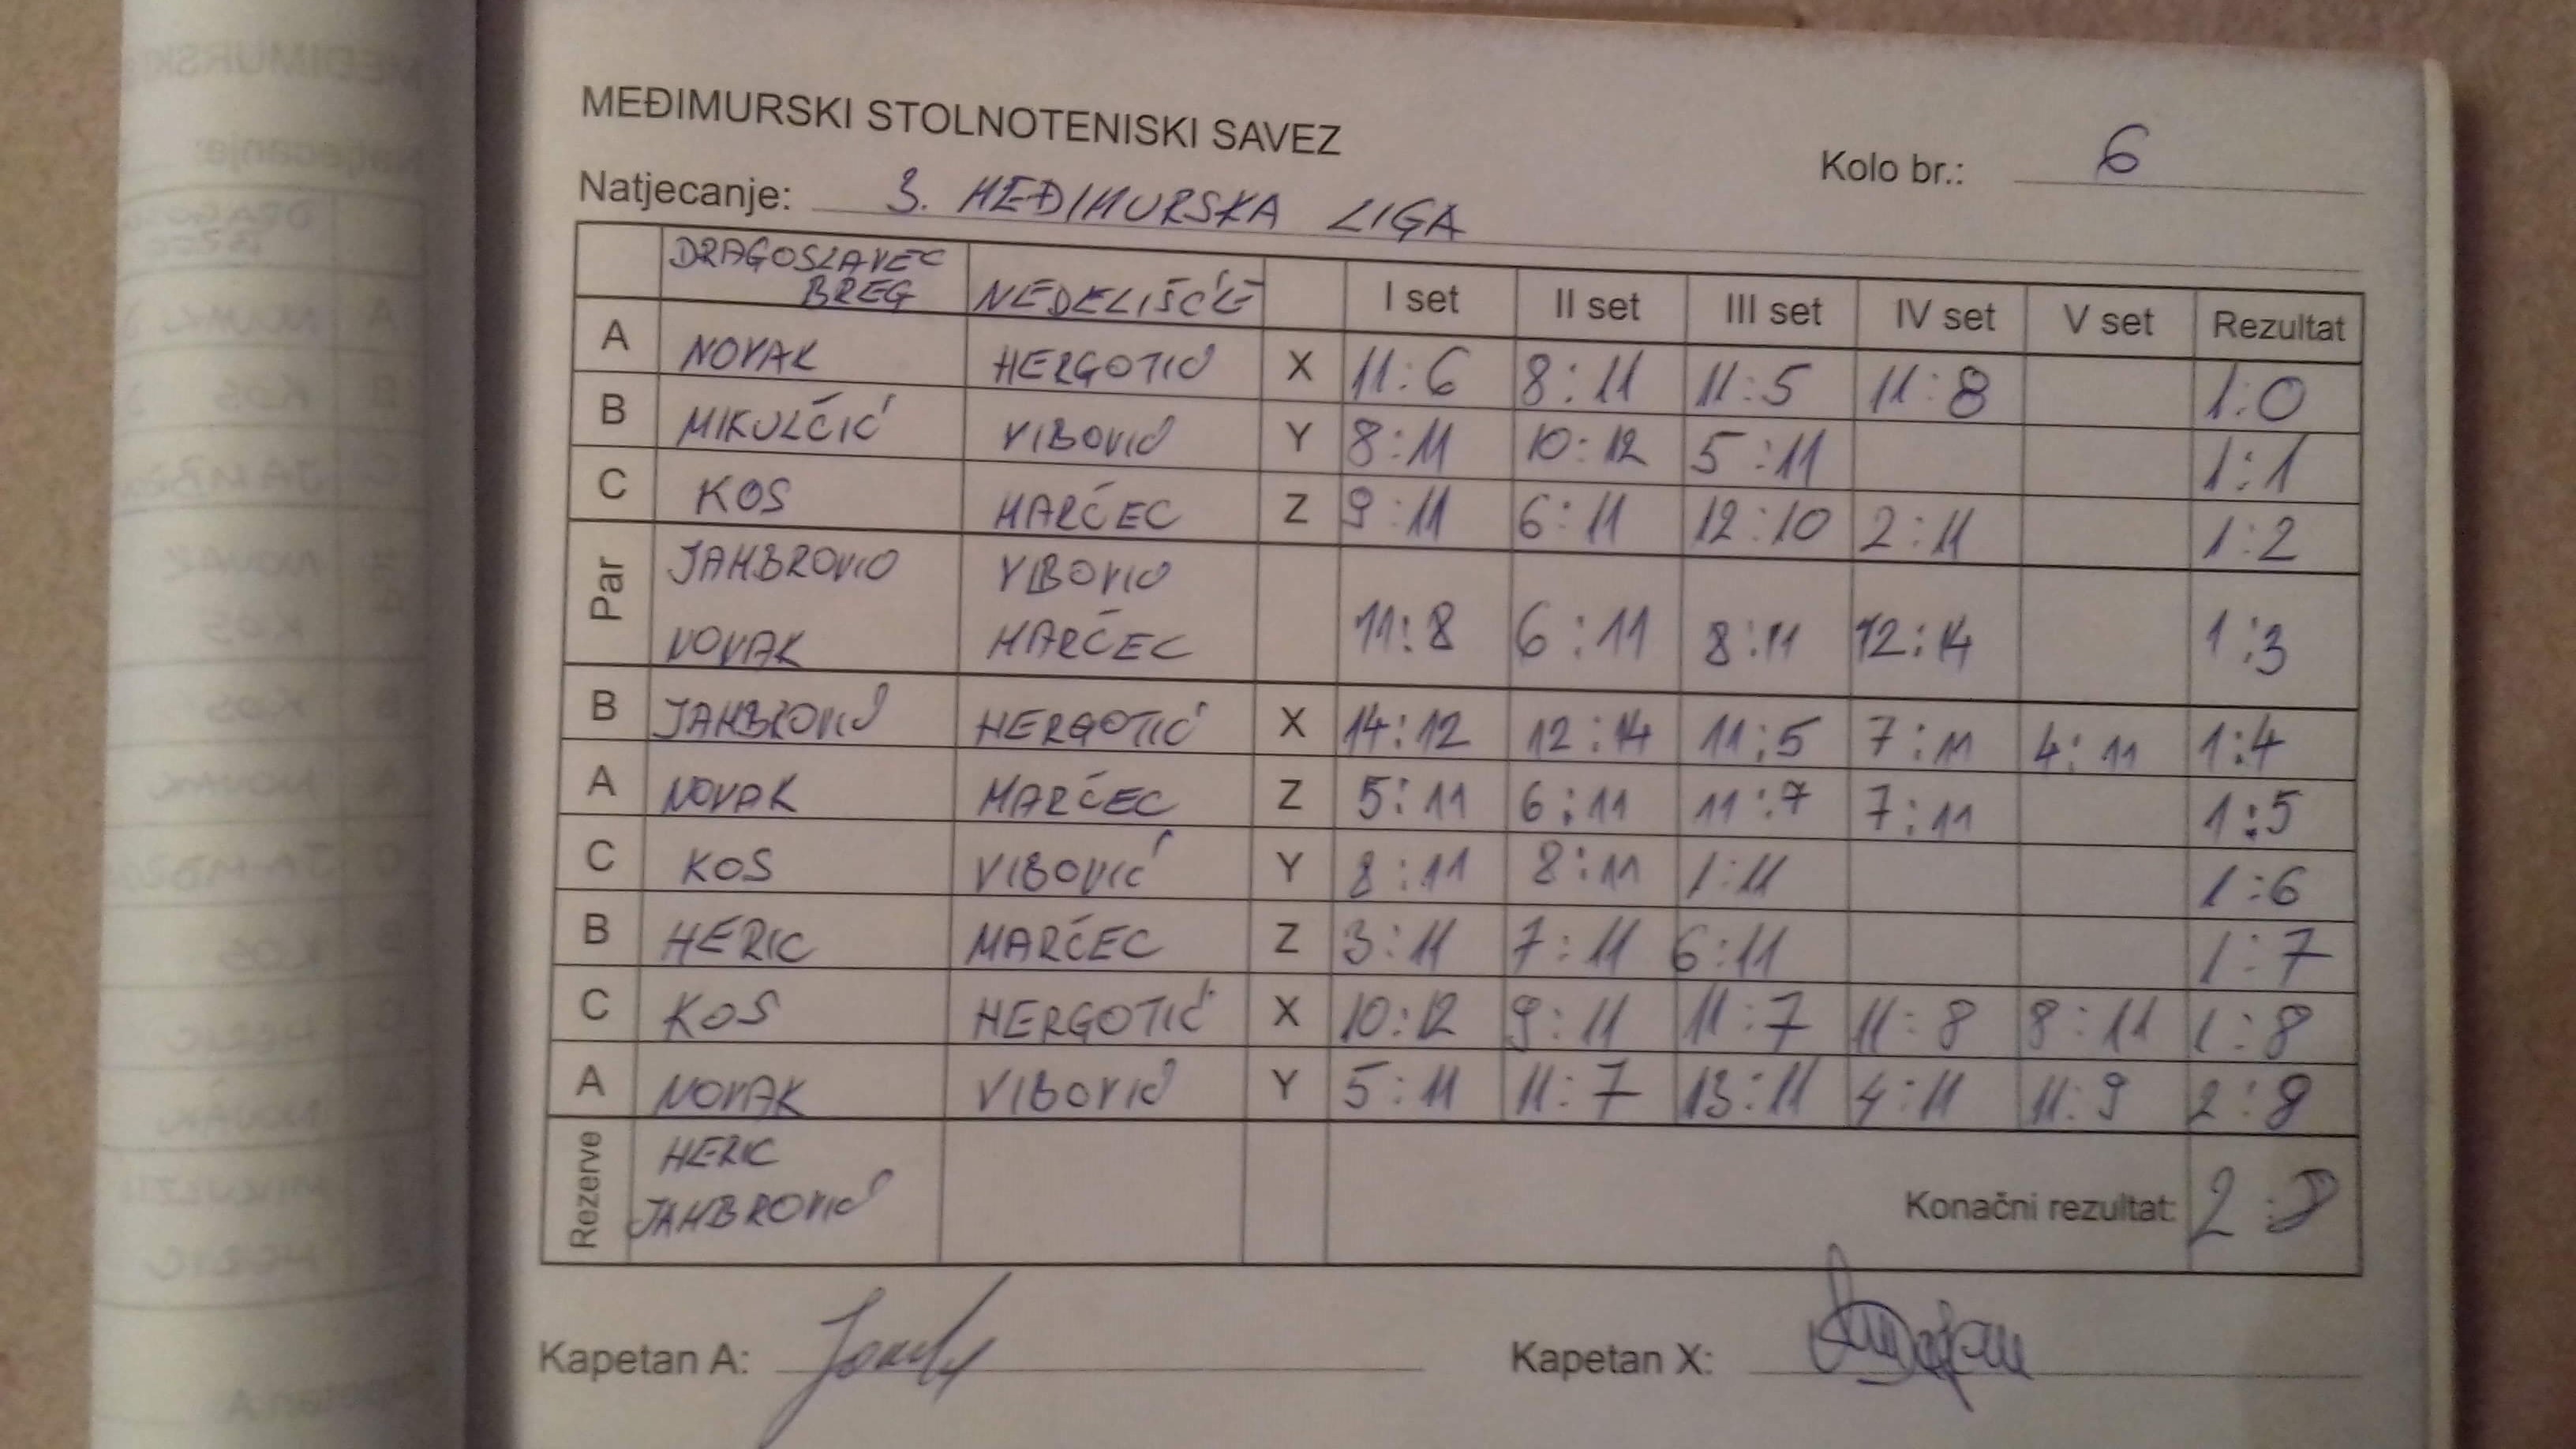 MEĐIMURSKI STOLNOTENISKI SAVEZ
Kolo br.: 6
Natjecanje: 3. MEĐIMURSKA LIGA
DRAGOSLAVEC BREG NEDELIŠĆE I set II set III set IV set V set Rezultat
A NOVAK HERGOTIĆ X 11:6 8:11 11:5 11:8 1:0
B MIKULČIĆ VIBOVIĆ Y 8:11 10:12 5:11 1:1
C KOS MARČEC Z 9:11 6:11 12:10 2:11 1:2
Par JAMBROVIĆ VIBOVIĆ
NOVAK MARČEC 11:8 6:11 8:11 12:14 1:3
B JAMBROVIĆ HERGOTIĆ X 14:12 12:14 11:5 7:11 4:11 1:4
A NOVAK MARČEC Z 5:11 6:11 11:7 7:11 1:5
C KOS VIBOVIĆ Y 8:11 8:11 1:11 1:6
B HERIC MARČEC Z 3:11 7:11 6:11 1:7
C KOS HERGOTIĆ X 10:12 9:11 11:7 11:8 8:11 1:8
A NOVAK VIBOVIĆ Y 5:11 11:7 13:11 4:11 11:9 2:8
Rezerve HERIC
JAMBROVIĆ
Konačni rezultat: 2:8
Kapetan A:
Kapetan X: